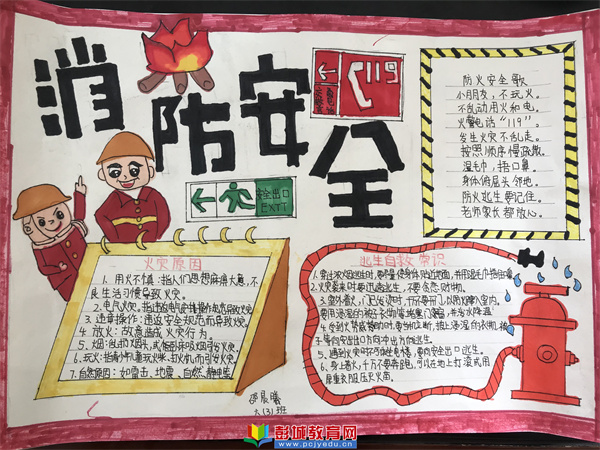 消防安全
119
安全出口
EXIT
防火安全歌
小朋友，不玩火。
不乱动用火和电。
火警电话“119”。
发生火灾不乱走。
按照顺序慢疏散。
湿毛巾，捂口鼻。
身体俯屈头邻地。
防火逃生要记住。
老师家长都放心。
火灾原因
1. 用火不慎：指人们思想麻痹大意，不
良生活习惯导致火灾。
2. 电气火灾：指违反电气安装操作规范导致火灾
3. 违章操作：违反安全规范而导致火灾。
4. 放火：故意造成火灾行为。
5. 烟：乱扔烟头，或卧床吸烟引发火灾。
6. 玩火：指小孩玩火柴、打火机而引发火灾。
7. 自然原因：如雷击、地震、自燃、静电等
逃生自救常识
1. 穿过浓烟逃生时，要尽量使身体贴近地面，并用湿毛巾捂住嘴鼻
2. 火灾袭来时要迅速逃生，不要贪恋财物。
3. 室外着火，门已发烫时，千万不要开门，以防火蹿入室内。
要用浸湿的被子衣物等堵塞门窗，并泼水降温
4. 受到火势威胁时，要当机立断，披上浸湿的衣物、被
子等向安全出口方向冲出去
5. 遇到火灾时不可乘坐电梯，要向安全出口逃生。
6. 身上着火，千万不要奔跑，可以在地上打滚或用
厚重衣服压灭火苗
六(3)班
彭城教育网
www.pcjyedu.cn